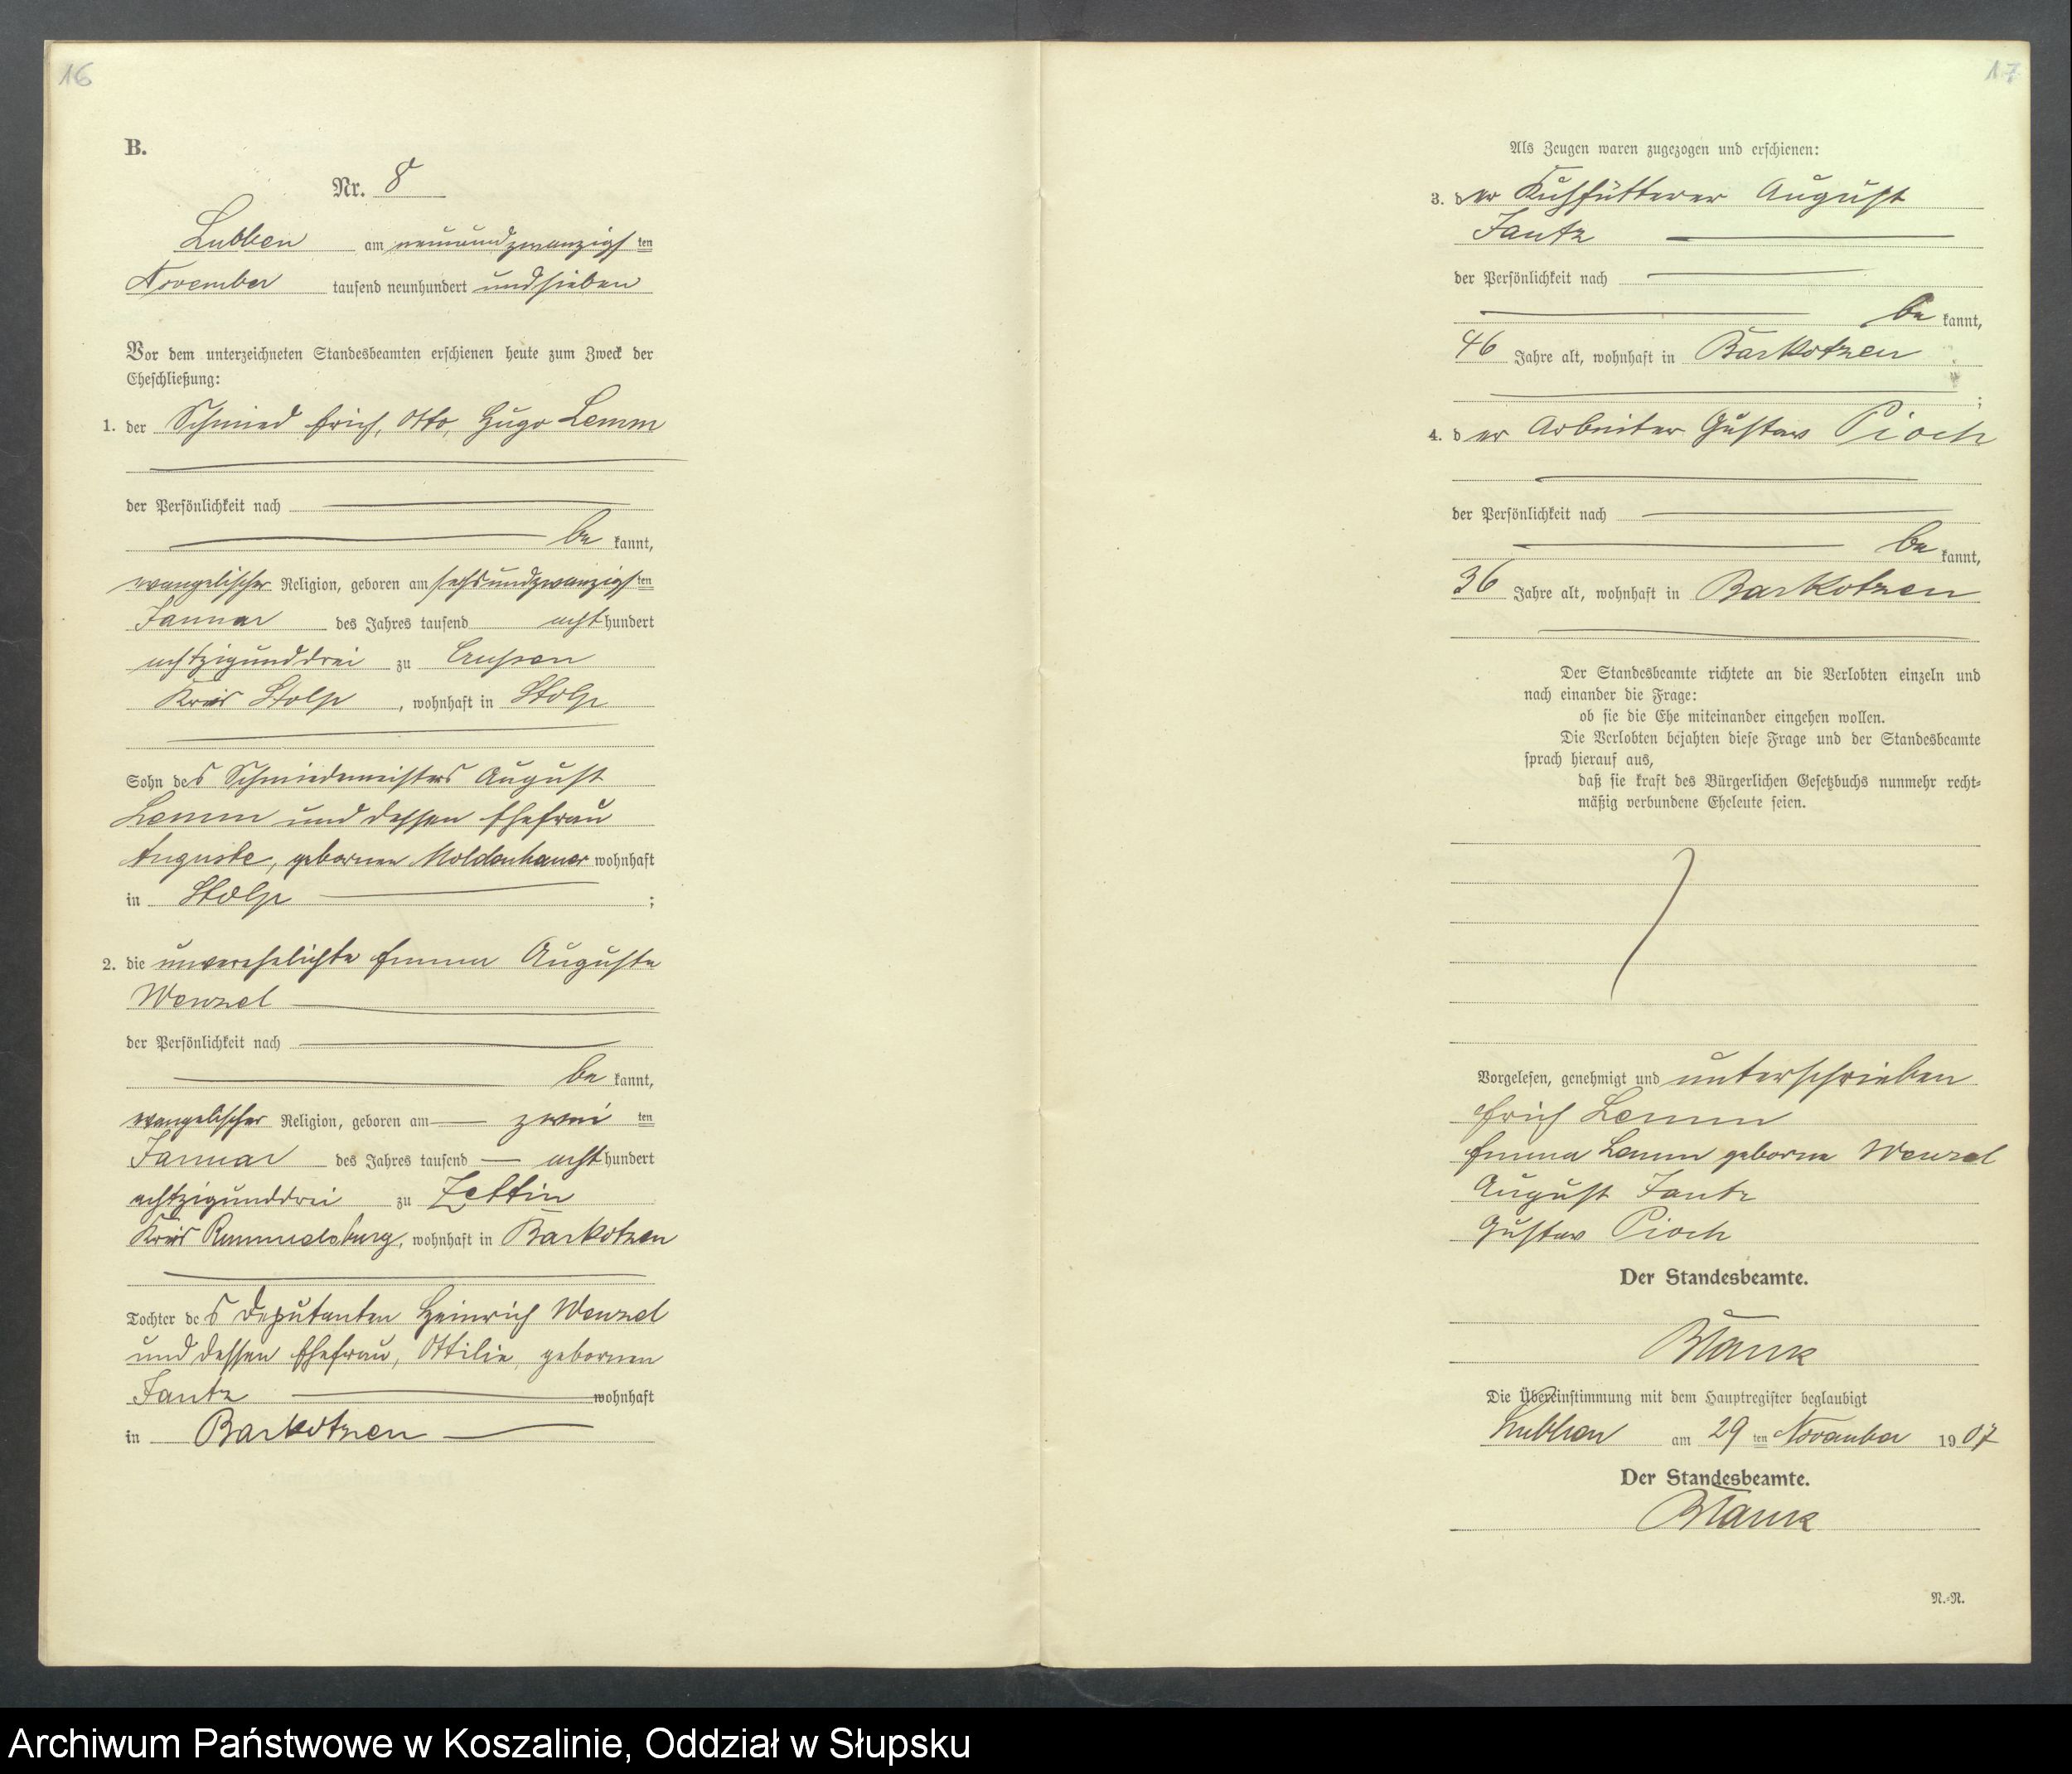 16
B.
Nr. 8
Lubben am neunundzwanzigsten
November tausend neunhundert und sieben
Vor dem unterzeichneten Standesbeamten erschienen heute zum Zweck der
Eheschließung:
1. der Schmied Erich, Otto, Hugo Lemm
der Persönlichkeit nach
be kannt,
evangelischer Religion, geboren am sechsundzwanzigsten
Januar des Jahres tausend acht hundert
achtzigunddrei zu Crussen
Kreis Stolp, wohnhaft in Stolp
Sohn des Schmiedemeisters August
Lemm und dessen Ehefrau
Auguste, geborenen Moldenhauer wohnhaft
in Stolp ;
2. die unverehelichte Emma Auguste
Wenzel
der Persönlichkeit nach
be kannt,
evangelischer Religion, geboren am zweiten
Januar des Jahres tausend acht hundert
achtzigunddrei zu Zettin
Kreis Rummelsburg, wohnhaft in Barkotzen
Tochter des Deputanten Heinrich Wenzel
und dessen Ehefrau, Ottilie, geborenen
Jantz wohnhaft
in Barkotzen
17
Als Zeugen waren zugezogen und erschienen:
3. der Kuhfütterer August
Jantz
der Persönlichkeit nach
be kannt,
46 Jahre alt, wohnhaft in Barkotzen
;
4. der Arbeiter Gustav Pioch
der Persönlichkeit nach
be kannt,
36 Jahre alt, wohnhaft in Barkotzen
Der Standesbeamte richtete an die Verlobten einzeln und
nach einander die Frage:
ob sie die Ehe miteinander eingehen wollen.
Die Verlobten bejahten diese Frage und der Standesbeamte
sprach hierauf aus,
daß sie kraft des Bürgerlichen Gesetzbuchs nunmehr recht-
mäßig verbundene Eheleute seien.
Vorgelesen, genehmigt und unterschrieben
Erich Lemm
Emma Lemm geborene Wenzel
August Jantz
Gustav Pioch
Der Standesbeamte.
Blank
Die Übereinstimmung mit dem Hauptregister beglaubigt
Lubben am 29ten November 1907
Der Standesbeamte.
Blank
N.-N.
Archiwum Państwowe w Koszalinie, Oddział w Słupsku